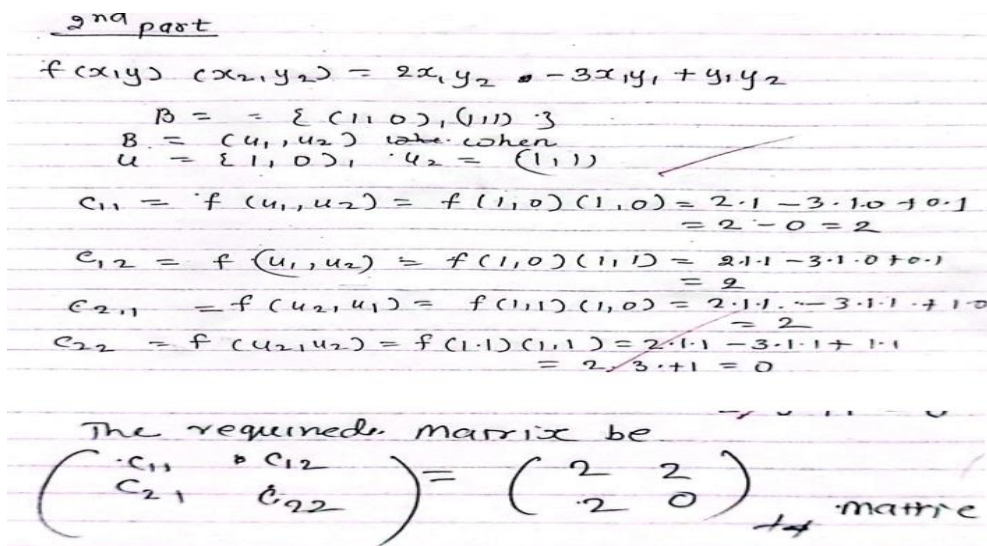 2nd part
f(x,y) (x2,y2) = 2x1y2 - 3x1y1 + y1y2
B = = { (1,0), (1,1) }
B = (u1,u2) when
u = {1,0), u2 = (1,1)
C11 = f (u1,u2) = f(1,0)(1,0) = 2.1 - 3.1.0 + 0.1
= 2 - 0 = 2
C12 = f (u1,u2) = f(1,0)(1,1) = 2.1.1 - 3.1.0 + 0.1
= 2
C2,1 = f (u2,u1) = f(1,1)(1,0) = 2.1.1. - 3.1.1 + 1.0
= 2
C22 = f (u2,u2) = f(1.1)(1,1) = 2.1.1 - 3.1.1 + 1.1
= 2, 3.+1 = 0
The requirede matrix be
( C11 C12 ) = ( 2 2 )
C21 C22 2 0 matrie